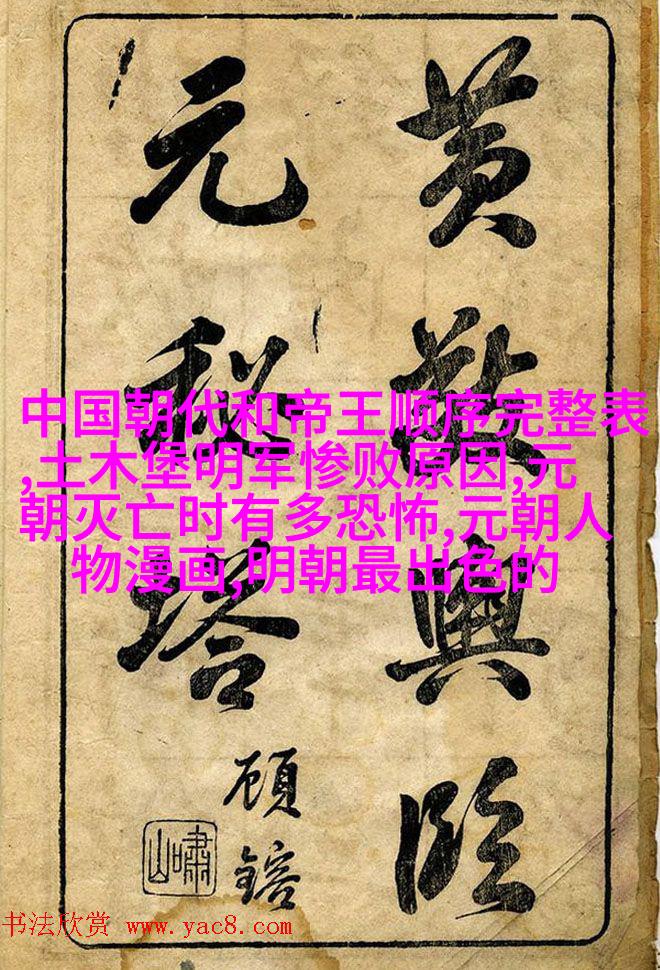 黄敬輿臨
元秘塔
顧鎔
嘯山
中国朝代和帝王顺序完整表
,土木堡明军惨败原因,元
朝灭亡时有多恐怖,元朝人
物漫画,明朝最出色的
书法欣赏 www.yac8.com